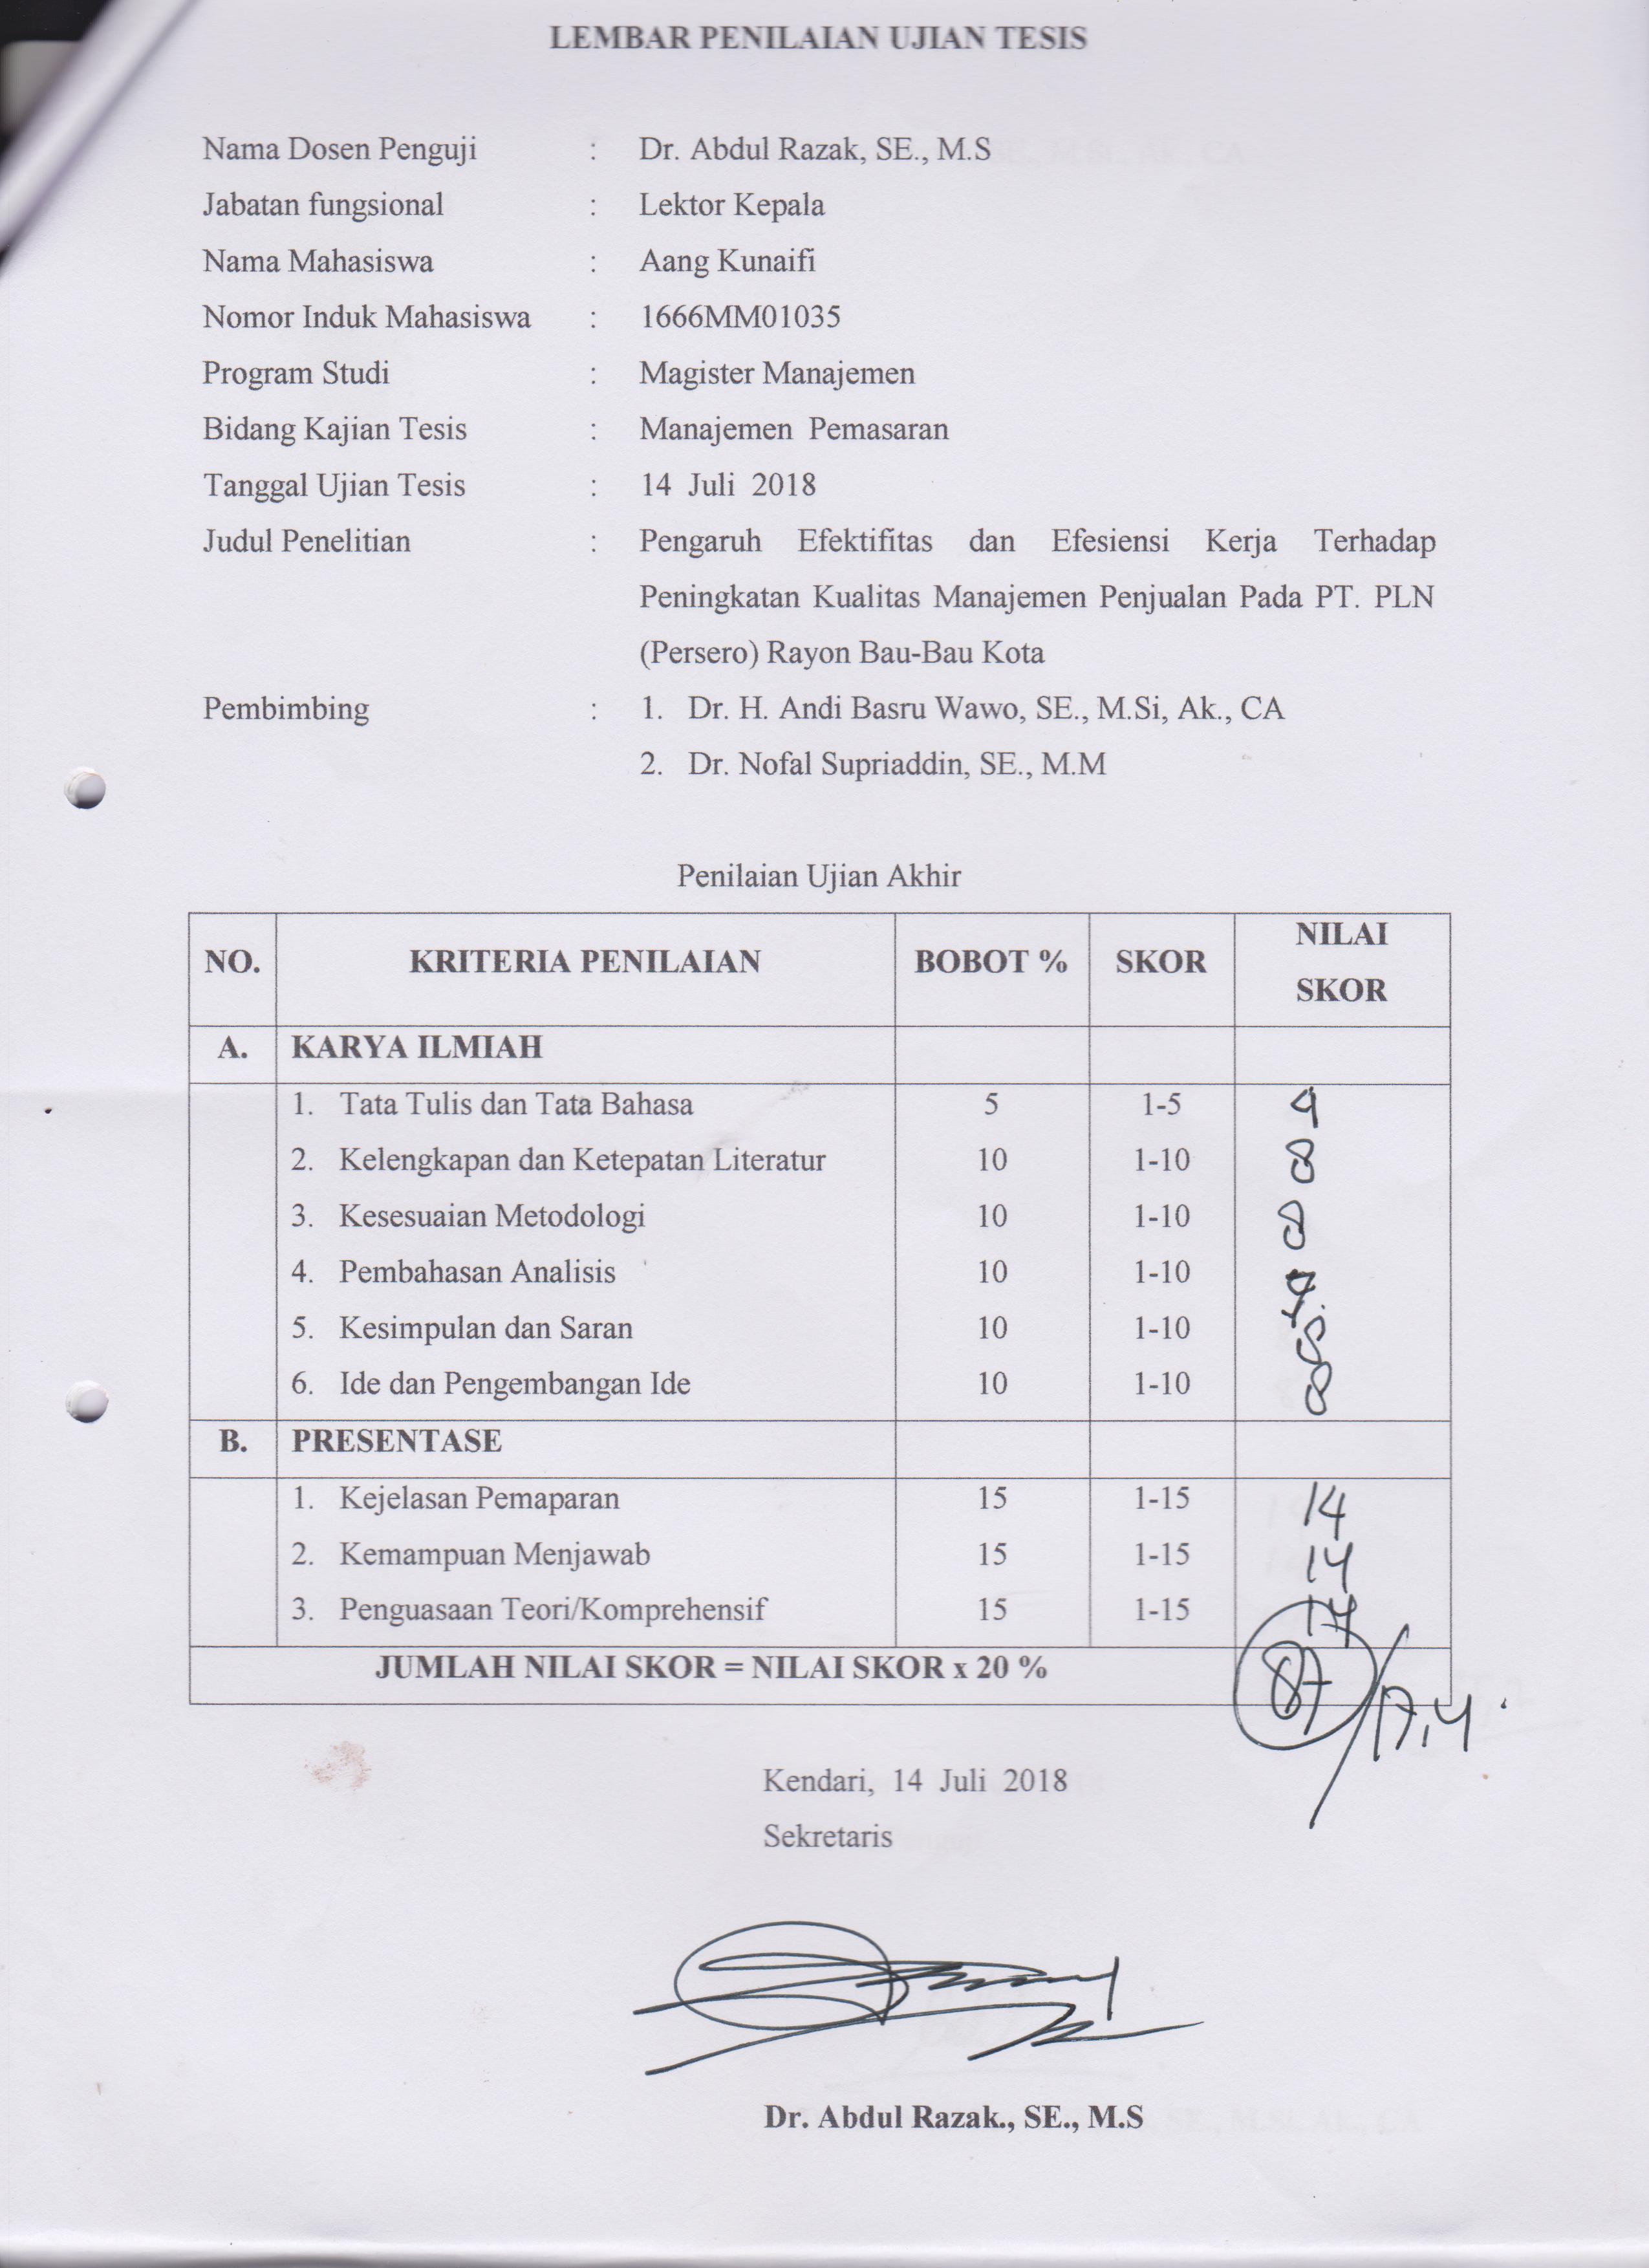 LEMBAR PENILAIAN UJIAN TESIS
Nama Dosen Penguji : Dr. Abdul Razak, SE., M.S
Jabatan fungsional : Lektor Kepala
Nama Mahasiswa : Aang Kunaifi
Nomor Induk Mahasiswa : 1666MM01035
Program Studi : Magister Manajemen
Bidang Kajian Tesis : Manajemen Pemasaran
Tanggal Ujian Tesis : 14 Juli 2018
Judul Penelitian : Pengaruh Efektifitas dan Efesiensi Kerja Terhadap
Peningkatan Kualitas Manajemen Penjualan Pada PT. PLN
(Persero) Rayon Bau-Bau Kota
Pembimbing : 1. Dr. H. Andi Basru Wawo, SE., M.Si, Ak., CA
2. Dr. Nofal Supriaddin, SE., M.M
Penilaian Ujian Akhir
NO. KRITERIA PENILAIAN BOBOT % SKOR NILAI SKOR
A. KARYA ILMIAH
1. Tata Tulis dan Tata Bahasa 5 1-5 4
2. Kelengkapan dan Ketepatan Literatur 10 1-10 8
3. Kesesuaian Metodologi 10 1-10 8
4. Pembahasan Analisis 10 1-10
5. Kesimpulan dan Saran 10 1-10 8
6. Ide dan Pengembangan Ide 10 1-10 8
B. PRESENTASE
1. Kejelasan Pemaparan 15 1-15 14
2. Kemampuan Menjawab 15 1-15 14
3. Penguasaan Teori/Komprehensif 15 1-15 14
JUMLAH NILAI SKOR = NILAI SKOR x 20 % 87 / 17,4
Kendari, 14 Juli 2018
Sekretaris
Dr. Abdul Razak., SE., M.S